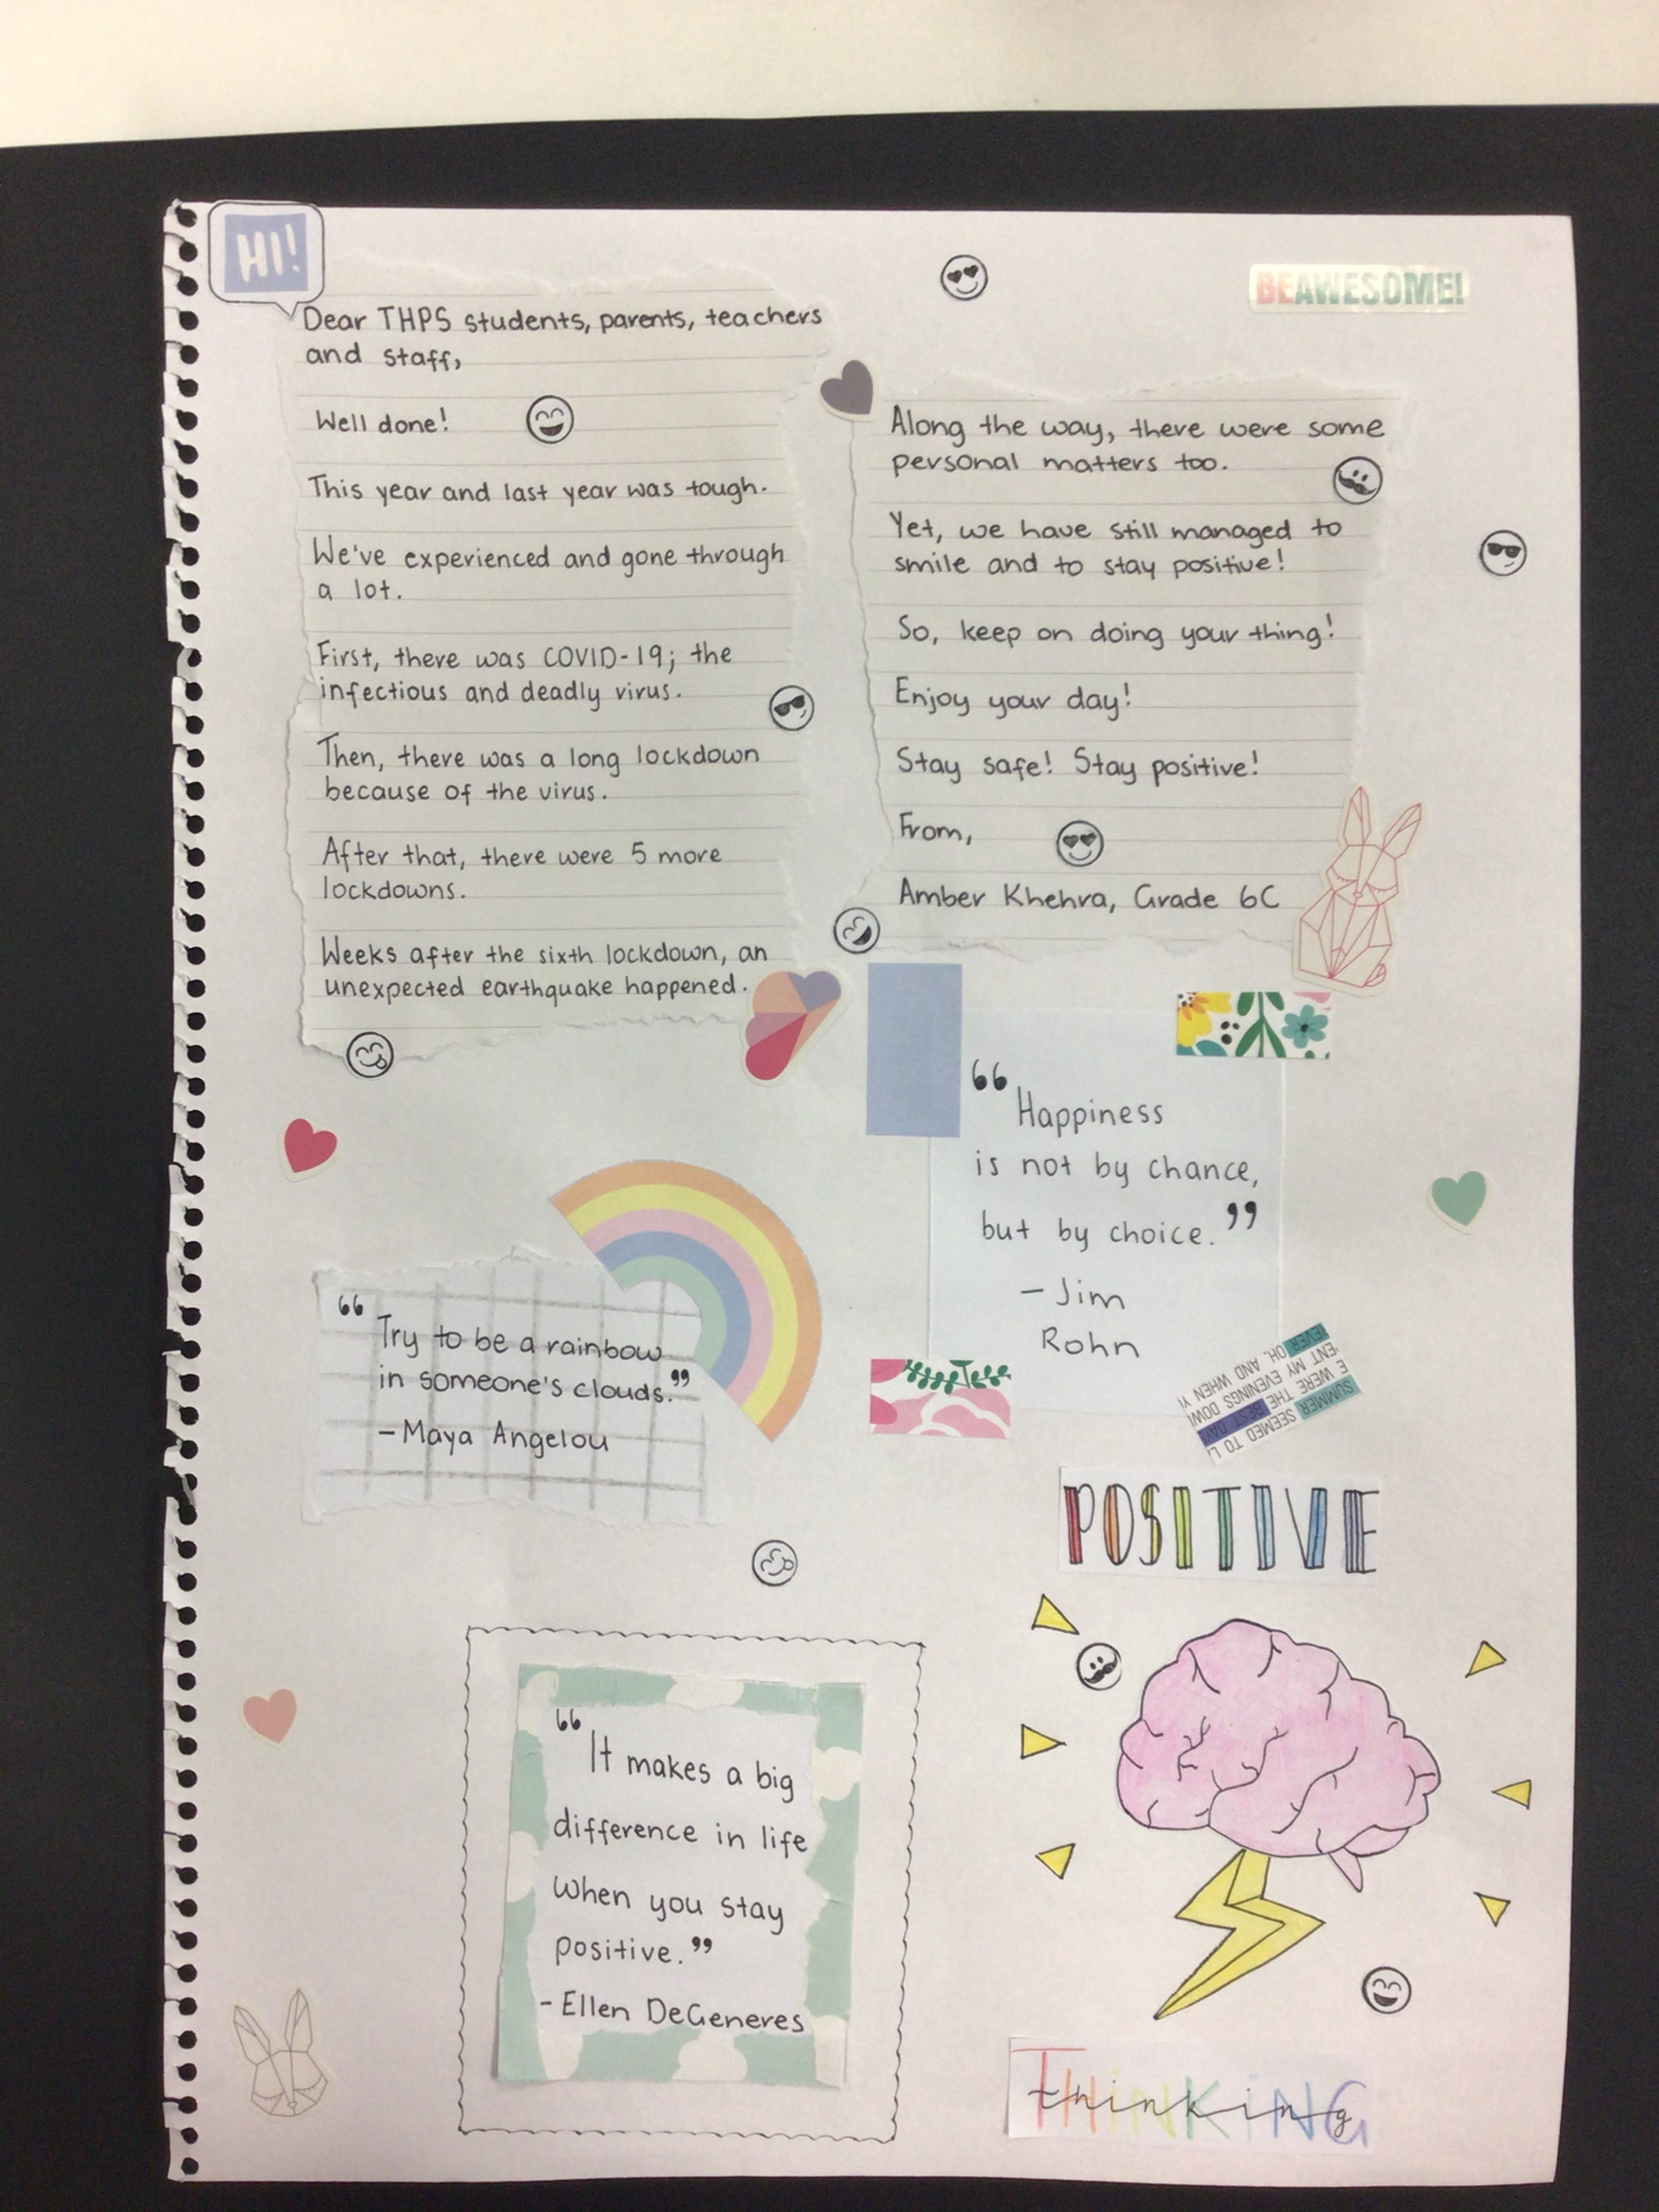 HI!
BEAWESOME!
Dear THPS students, parents, teachers
and staff,
Well done!
This year and last year was tough.
We've experienced and gone through
a lot.
First, there was COVID-19; the
infectious and deadly virus.
Then, there was a long lockdown
because of the virus.
After that, there were 5 more
lockdowns.
Weeks after the sixth lockdown, an
unexpected earthquake happened.
Along the way, there were some
personal matters too.
Yet, we have still managed to
smile and to stay positive!
So, keep on doing your thing!
Enjoy your day!
Stay safe! Stay positive!
From,
Amber Khehra, Grade 6C
“Happiness
is not by chance,
but by choice.”
- Jim
Rohn
“Try to be a rainbow
in someone's clouds.”
- Maya Angelou
SUMMER SEEMED TO
E WERE THE BEST DAY
ENT MY EVENINGS DOW
EVER OH, AND WHEN
POSITIVE
“It makes a big
difference in life
when you stay
positive.”
- Ellen DeGeneres
THiNKiNG
thinking